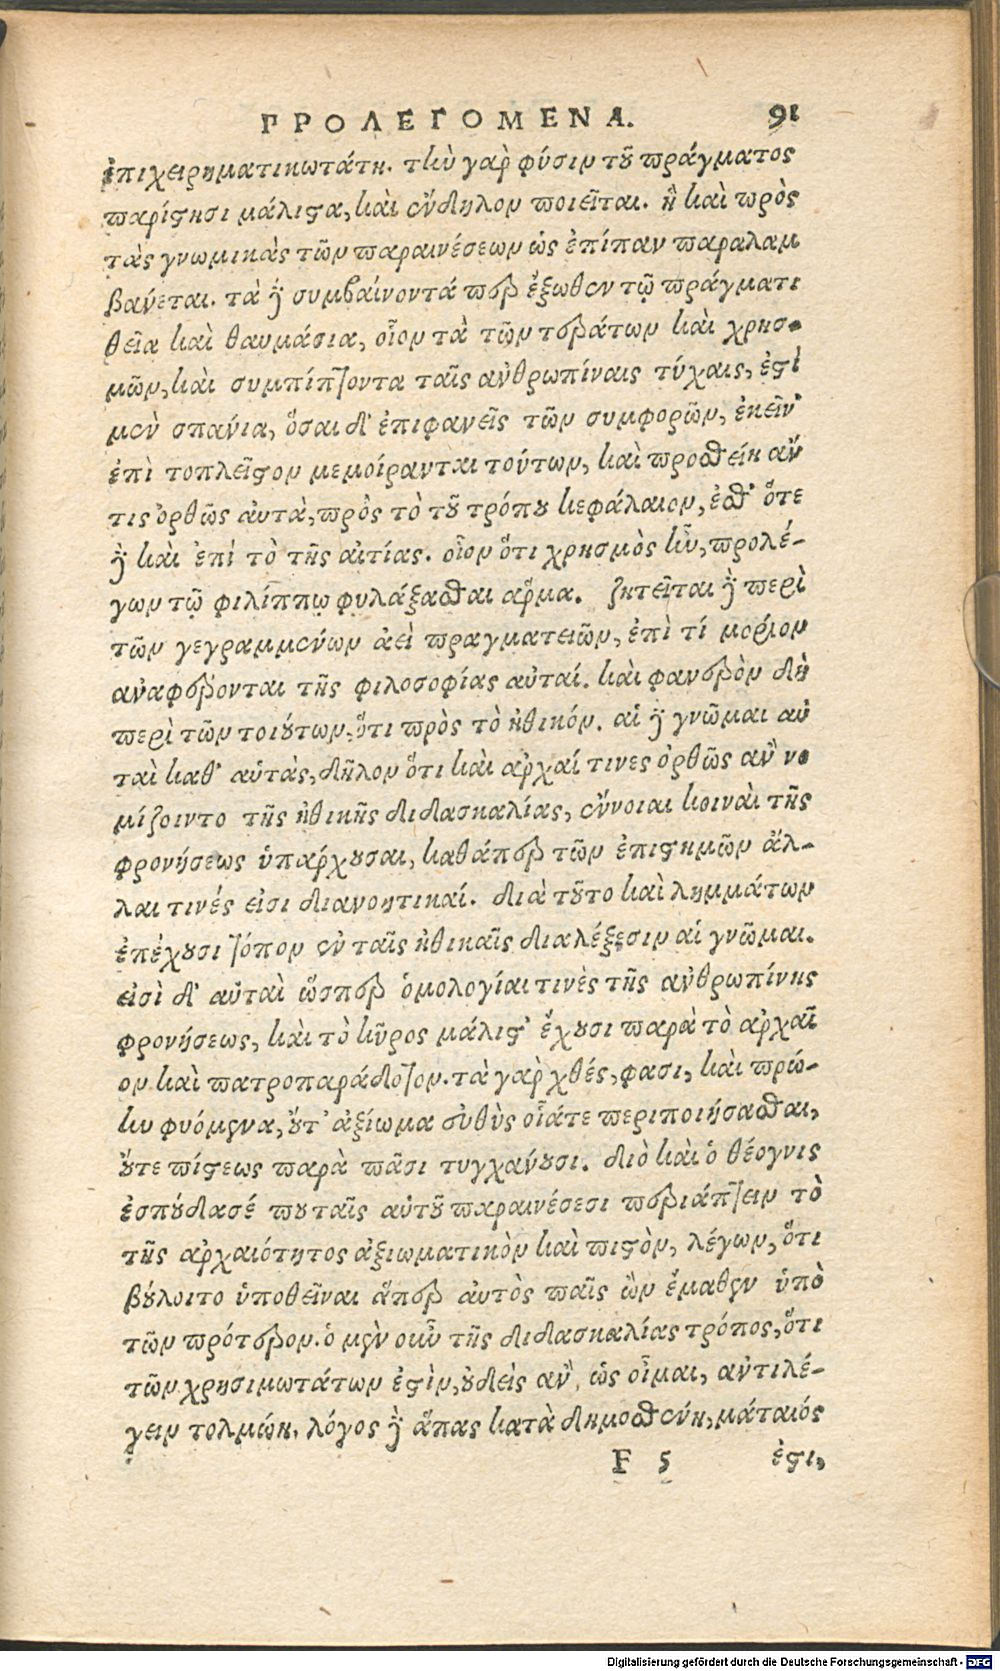 ΠΡΟΛΕΓΟΜΕΝΑ. 91
ἐπιχειρηματικωτάτη. τὴν γὰρ φύσιν τοῦ πράγματος
παρίστησι μάλιστα, καὶ ἔνδηλον ποιεῖται. ἣ καὶ πρὸς
τὰς γνωμικὰς τῶν παραινέσεων ὡς ἐπίπαν παραλαμ
βάνεται. τὰ δὲ συμβαίνοντά περ ἔξωθεν τῷ πράγματι
θεῖα καὶ θαυμάσια, οἷον τὰ τῶν τεράτων καὶ χρησ-
μῶν, καὶ συμπίπτοντα ταῖς ἀνθρωπίναις τύχαις, ἐστὶ
μὲν σπάνια, ὅσαι δ' ἐπιφανεῖς τῶν συμφορῶν, ἐκεῖν'
ἐπὶ τοπλεῖστον μεμοίρανται τούτων, καὶ προσθείη ἄν
τις ὀρθῶς αὐτὰ, πρὸς τὸ τοῦ τρόπου κεφάλαιον, ἔσθ' ὅτε
δὲ καὶ ἐπὶ τὸ τῆς αἰτίας. οἷον ὅτι χρησμὸς ἦν, προλέ-
γων τῷ φιλίππῳ φυλάξασθαι ἅρμα. ζητεῖται δὲ περὶ
τῶν γεγραμμένων ἀεὶ πραγματειῶν, ἐπὶ τί μόριον
ἀναφέρονται τῆς φιλοσοφίας αὐταί. καὶ φανερὸν δὴ
περὶ τῶν τοιούτων, ὅτι πρὸς τὸ ἠθικόν. αἱ δὲ γνῶμαι αὐ
ταὶ καθ' αὑτὰς, δῆλον ὅτι καὶ ἀρχαί τινες ὀρθῶς ἂν νο
μίζοιντο τῆς ἠθικῆς διδασκαλίας, ἔννοιαι κοιναὶ τῆς
φρονήσεως ὑπάρχουσαι, καθάπερ τῶν ἐπιστημῶν ἄλ-
λαι τινές εἰσι διανοητικαί. διὰ τοῦτο καὶ λημμάτων
ἐπέχουσι τόπον ἐν ταῖς ἠθικαῖς διαλέξεσιν αἱ γνῶμαι.
εἰσὶ δ' αὐταὶ ὥσπερ ὁμολογίαι τινὲς τῆς ἀνθρωπίνης
φρονήσεως, καὶ τὸ κῦρος μάλιστ' ἔχουσι παρὰ τὸ ἀρχαῖ
ον καὶ πατροπαράδοτον. τὰ γὰρ χθές, φασι, καὶ πρώ-
ην φυόμενα, οὔτ' ἀξίωμα εὐθὺς οἷάτε περιποιήσασθαι,
οὔτε πίστεως παρὰ πᾶσι τυγχάνουσι. διὸ καὶ ὁ θέογνις
ἐσπούδασέ που ταῖς αὑτοῦ παραινέσεσι περιάπτειν τὸ
τῆς ἀρχαιότητος ἀξιωματικὸν καὶ πιστὸν, λέγων, ὅτι
βούλοιτο ὑποθεῖναι ἅπερ αὐτὸς παῖς ὢν ἔμαθεν ὑπὸ
τῶν πρότερον. ὁ μὲν οὖν τῆς διδασκαλίας τρόπος, ὅτι
τῶν χρησιμωτάτων ἐστὶν, οὐδεὶς ἂν, ὡς οἶμαι, ἀντιλέ-
γειν τολμώη. λόγος δὲ ἅπας κατὰ δημοσθένη, μάταιός
F 5 ἐστι,
Digitalisierung gefördert durch die Deutsche Forschungsgemeinschaft - DFG